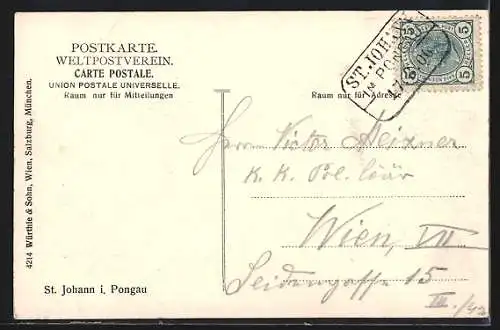 POSTKARTE.
WELTPOSTVEREIN.
CARTE POSTALE.
UNION POSTALE UNIVERSELLE.
Raum nur für Mitteilungen
ST. JOHANN
IM PONGAU
5 5
5 5
Raum nur für Adresse
Herrn Victor Deixner
K. K. Pol.
Wien, VII
Seidengasse 15
III.
4214 Würthle & Sohn, Wien, Salzburg, München.
St. Johann i, Pongau